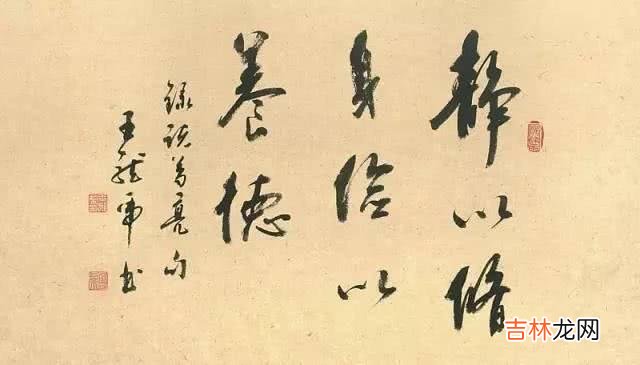 静以修
身俭以
养德
録諸葛亮句
王龍雨书
吉林龙网